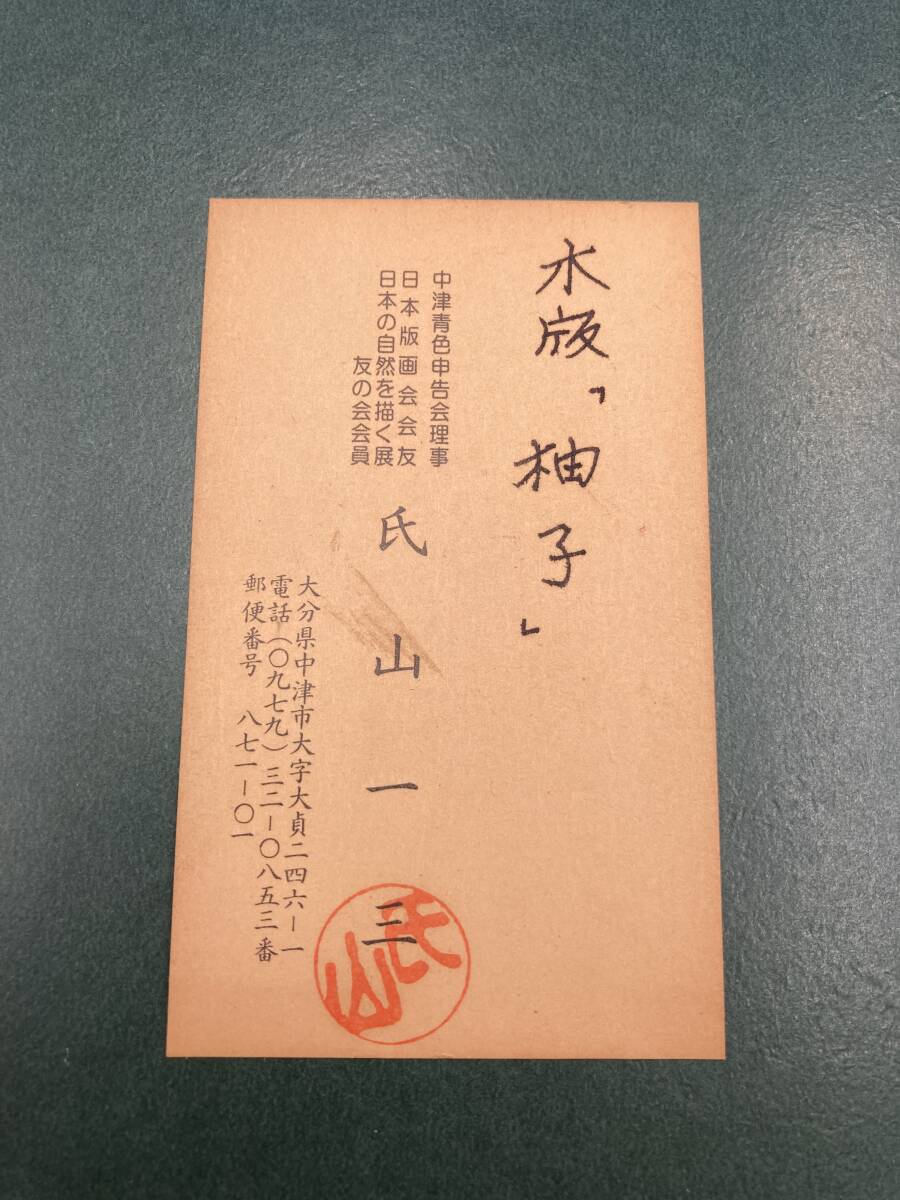 木版「柚子」
中津青色申告会理事
日本版画会会友
日本の自然を描く展
友の会会員
氏山一三
大分県中津市大字大貞二四六ー一
電話(〇九七九)三二ー〇八五三番
郵便番号 八七一ー〇一
氏山